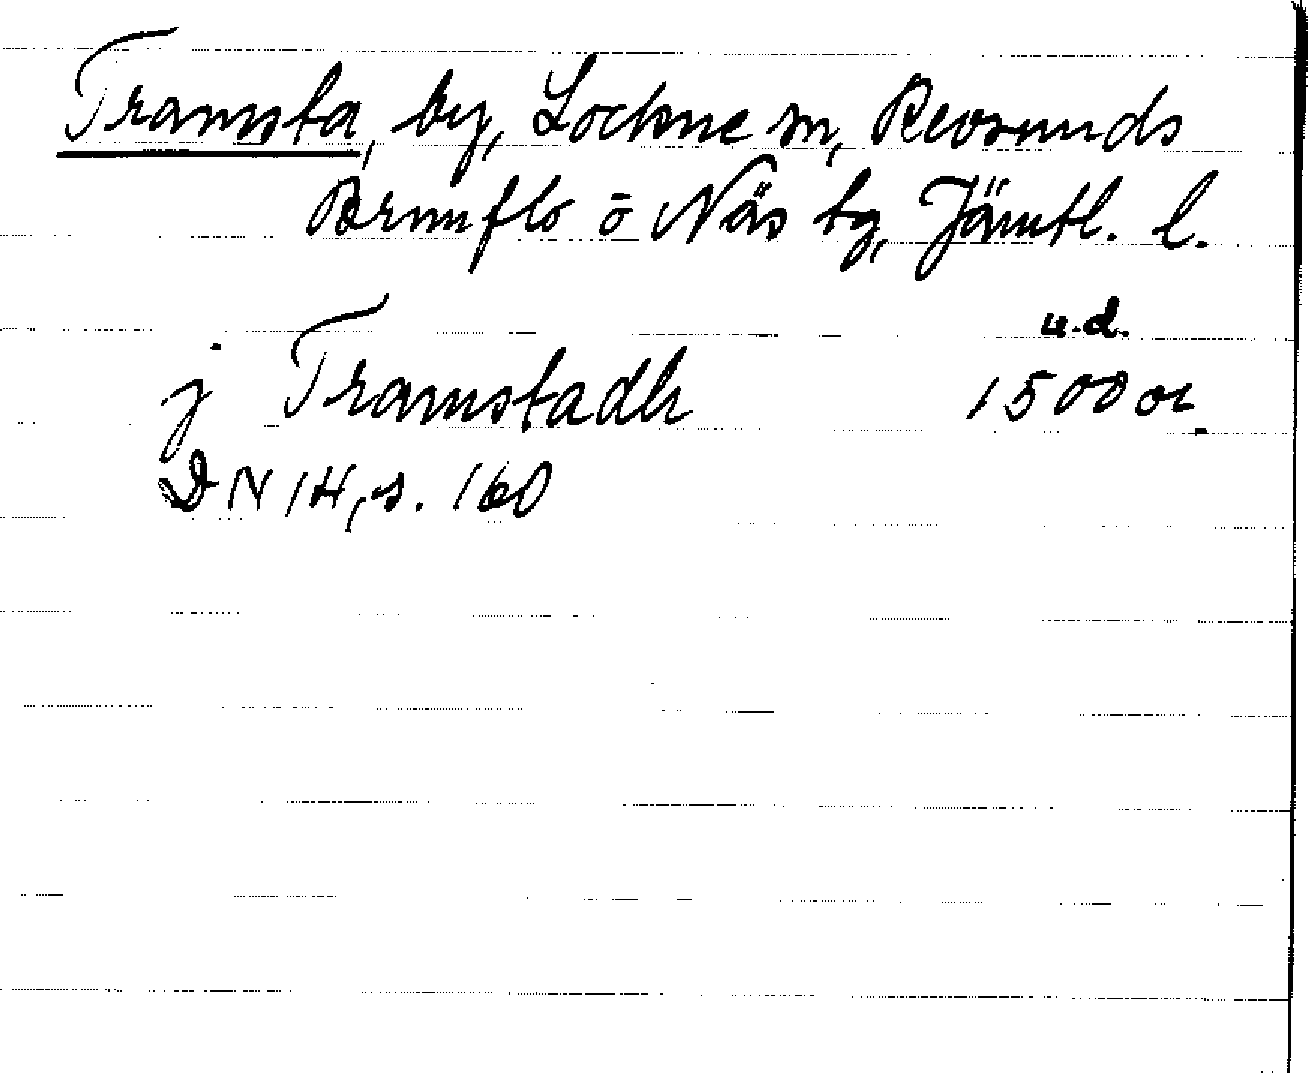 Tramsta, by, Lockne sn, Revsunds
Brunflo o Näs tg, Jämtl. l.
u.d.
j Tramstadh 1500 or.
DN 14, s. 160